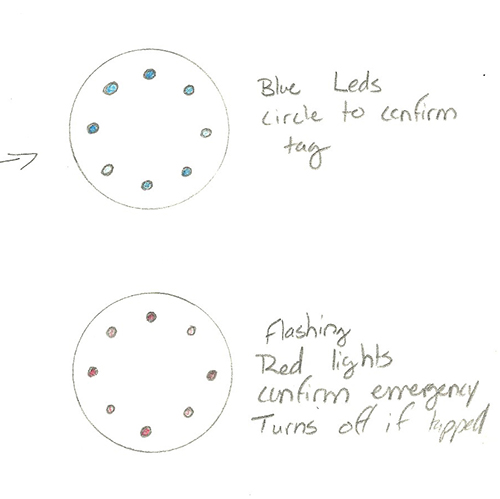 Blue Leds
circle to confirm
tag
flashing
Red lights
confirm emergency
Turns off if tapped